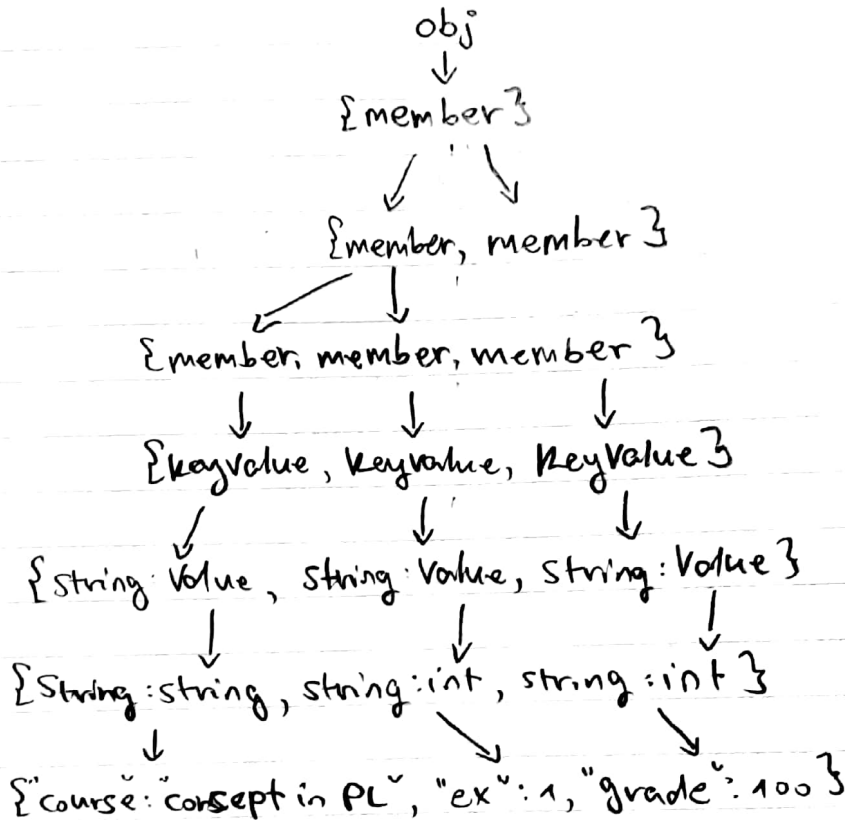 obj
{member}
{member, member}
{member, member, member}
{keyvalue, keyvalue, keyValue}
{string: Value, string: Value, string: Value}
{String: string, string: int, string: int}
{"course": "consept in PL", "ex": 1, "grade": 100}